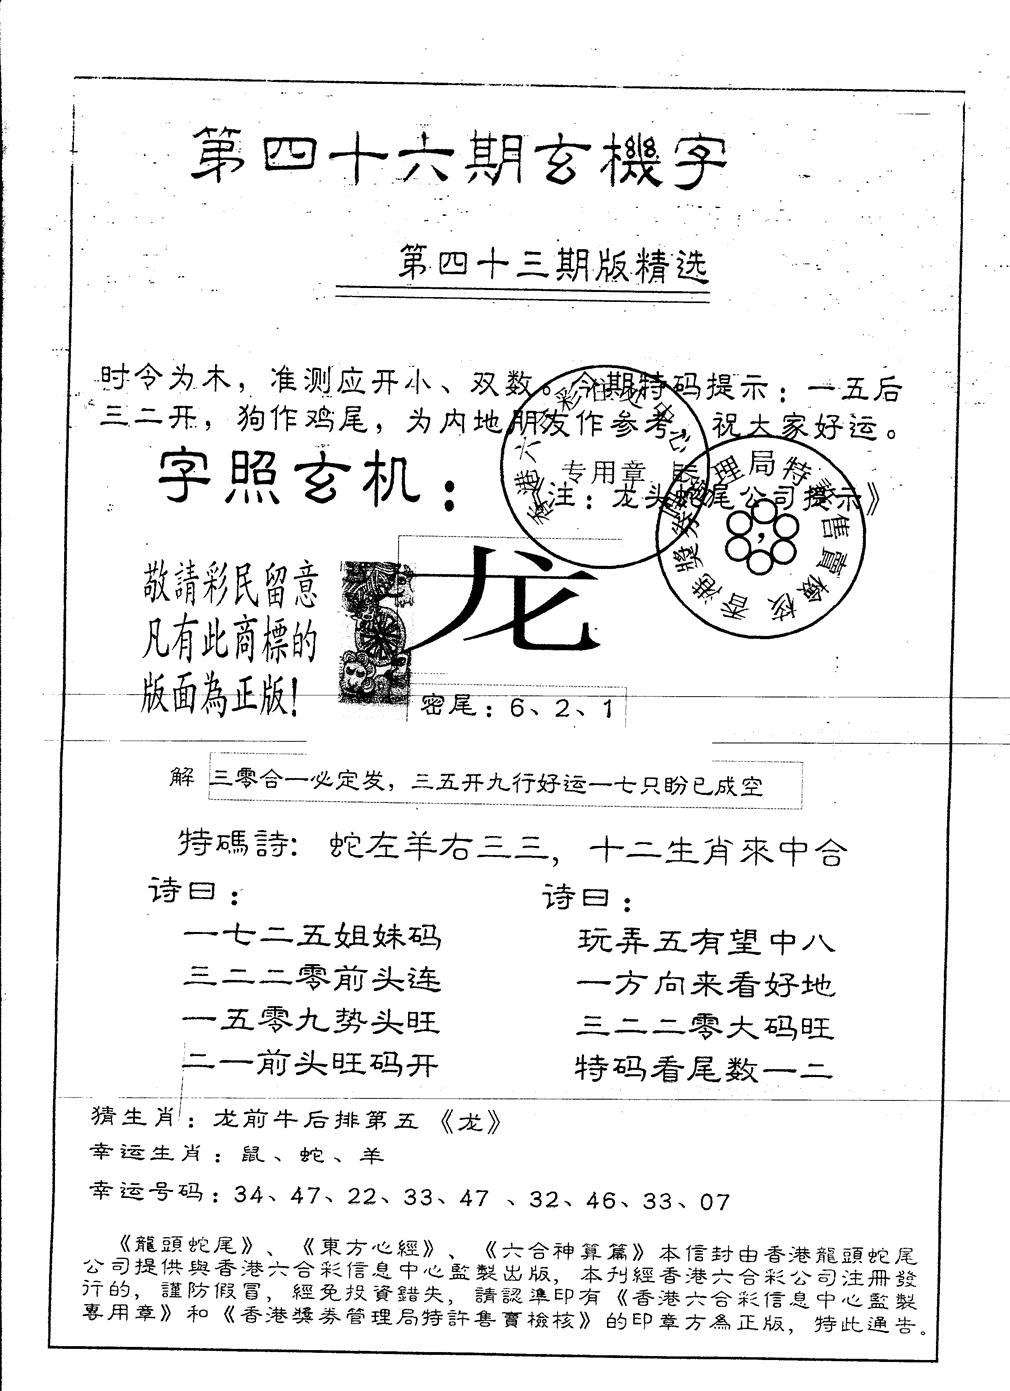 第四十六期玄機字
第四十三期版精选
时令为木，准测应开小、双数。今期特码提示：一五后
三二开，狗作鸡尾，为内地朋友作参考，祝大家好运。
字照玄机：
专用章
《注：龙头蛇尾公司提示》
香港獎券管理局特許售賣檢核
敬請彩民留意
凡有此商標的
版面為正版！
龙
密尾：6、2、1
解 三零合一必定发，三五开九行好运一七只盼已成空
特碼詩：蛇左羊右三三，十二生肖來中合
诗曰：
一七二五姐妹码
三二二零前头连
一五零九势头旺
二一前头旺码开
诗曰：
玩弄五有望中八
一方向来看好地
三二二零大码旺
特码看尾数一二
猜生肖：龙前牛后排第五《龙》
幸运生肖：鼠、蛇、羊
幸运号码：34、47、22、33、47 、32、46、33、07
《龍頭蛇尾》、《東方心經》、《六合神算篇》本信封由香港龍頭蛇尾
公司提供與香港六合彩信息中心監製出版，本刊經香港六合彩公司注冊發
行的，謹防假冒，經免投資錯失，請認準印有《香港六合彩信息中心監製
專用章》和《香港獎券管理局特許售賣檢核》的印章方為正版，特此通告。